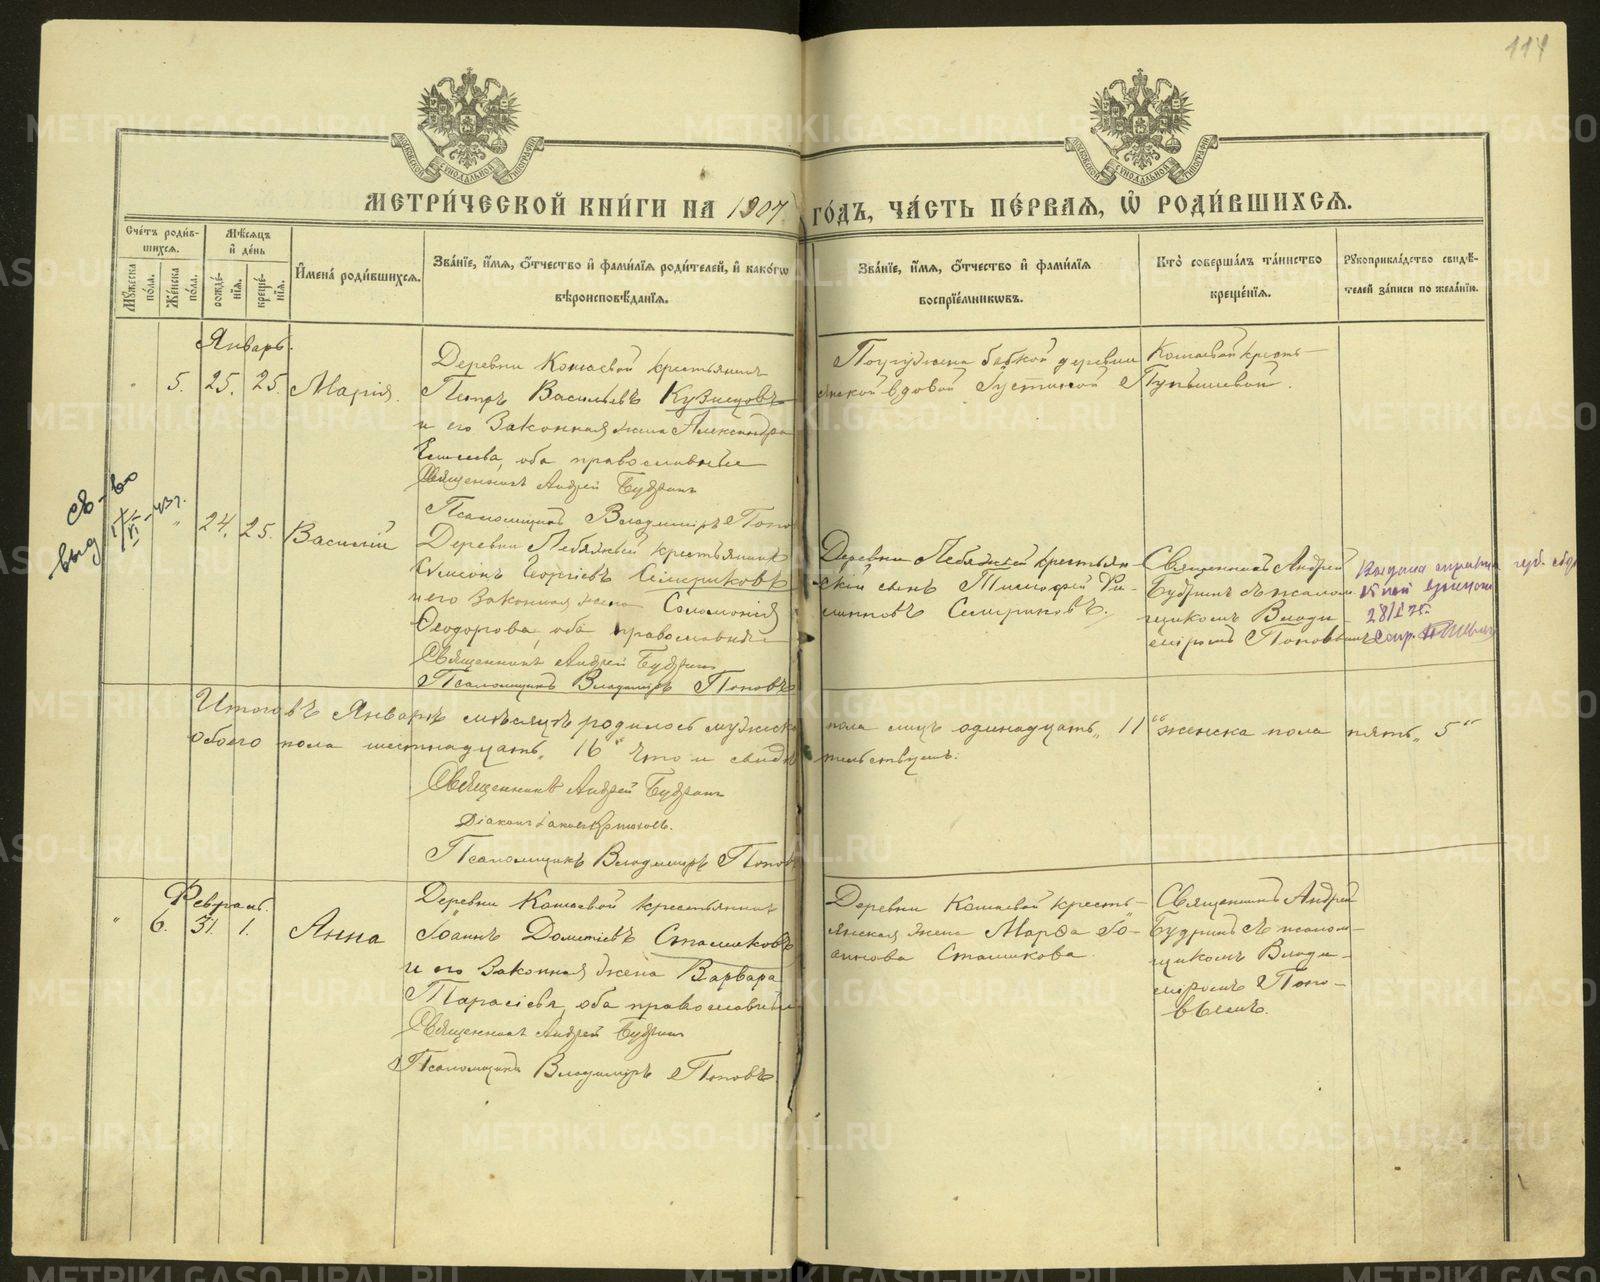 114
МЕТРИ́ЧЕСКОЙ КНИ́ГИ НА 1907 ГО́ДЪ, ЧА́СТЬ ПЕ́РВАЯ, Ѡ҆ РОДИ́ВШИХСЯ.
Сче́тъ роди́вшихся.
Мꙋ́жеска по́ла.
Же́нска по́ла.
Мѣ́сяцъ и҆ де́нь
рожде́нїя.
креще́нїя.
И҆мена̀ роди́вшихся.
Зва́нїе, и҆́мя, ѻ҆́тчество и҆ фами́лїя роди́телей, и҆ како́гѡ вѣроисповѣ́данїя.
Зва́нїе, и҆́мя, ѻ҆́тчество и҆ фами́лїя воспрїе́мникѡвъ.
Кто̀ соверша́лъ та́инство креще́нїя.
Рꙋкоприкла́дство свидѣ́телей за́писи по жела́нїю.
Январь.
" 5. 25. 25. Марія.
Деревни Кошаевой крестьянинъ
Петръ Васильевъ Кузнецовъ
и его законная жена Александра
оба православные
Священникъ Андрей Будринъ
Псаломщикъ Владиміръ Попов
Погружена бабкой деревни Кошаевой кресть-
янской вдовой
св-во
выд
24. 25. Василій
Деревни Лебяжьей крестьянинъ
Сѵмеонъ Георгіевъ Семериковъ
и его законная жена Соломонія
Ѳеодорова, оба православные
Священникъ Андрей Будринъ
Псаломщикъ Владиміръ Поповъ
Деревни Лебяжьей крестьян-
скій сынъ Тимофей Фи-
липповъ Семериковъ.
Священникъ Андрей
Будринъ съ псалом-
щикомъ Влади-
міромъ Поповымъ
Выдана справка
28/I 75.
Итого въ Январѣ мѣсяцѣ родилось мужска пола лицъ одинадцать „11“ женска пола пять „5“
обоего пола шестнадцать „16“ что и свидѣтельствуемъ.
Священникъ Андрей Будринъ
Діаконъ
Псаломщикъ Владиміръ Попов
Февраль.
" 6. 31. 1. Анна
Деревни Кошаевой крестьянинъ
Іоаннъ Дометіевъ Сташковъ
и его законная жена Варвара
Тарасіева, оба православные
Священникъ Андрей Будринъ
Псаломщикъ Владиміръ Поповъ
Деревни Кошаевой кресть-
янская жена Марѳа Іо-
аннова Сташкова.
Священникъ Андрей
Будринъ съ псалом-
щикомъ Влади-
міромъ Попо-
вымъ.
METRIKI.GASO-URAL.RU